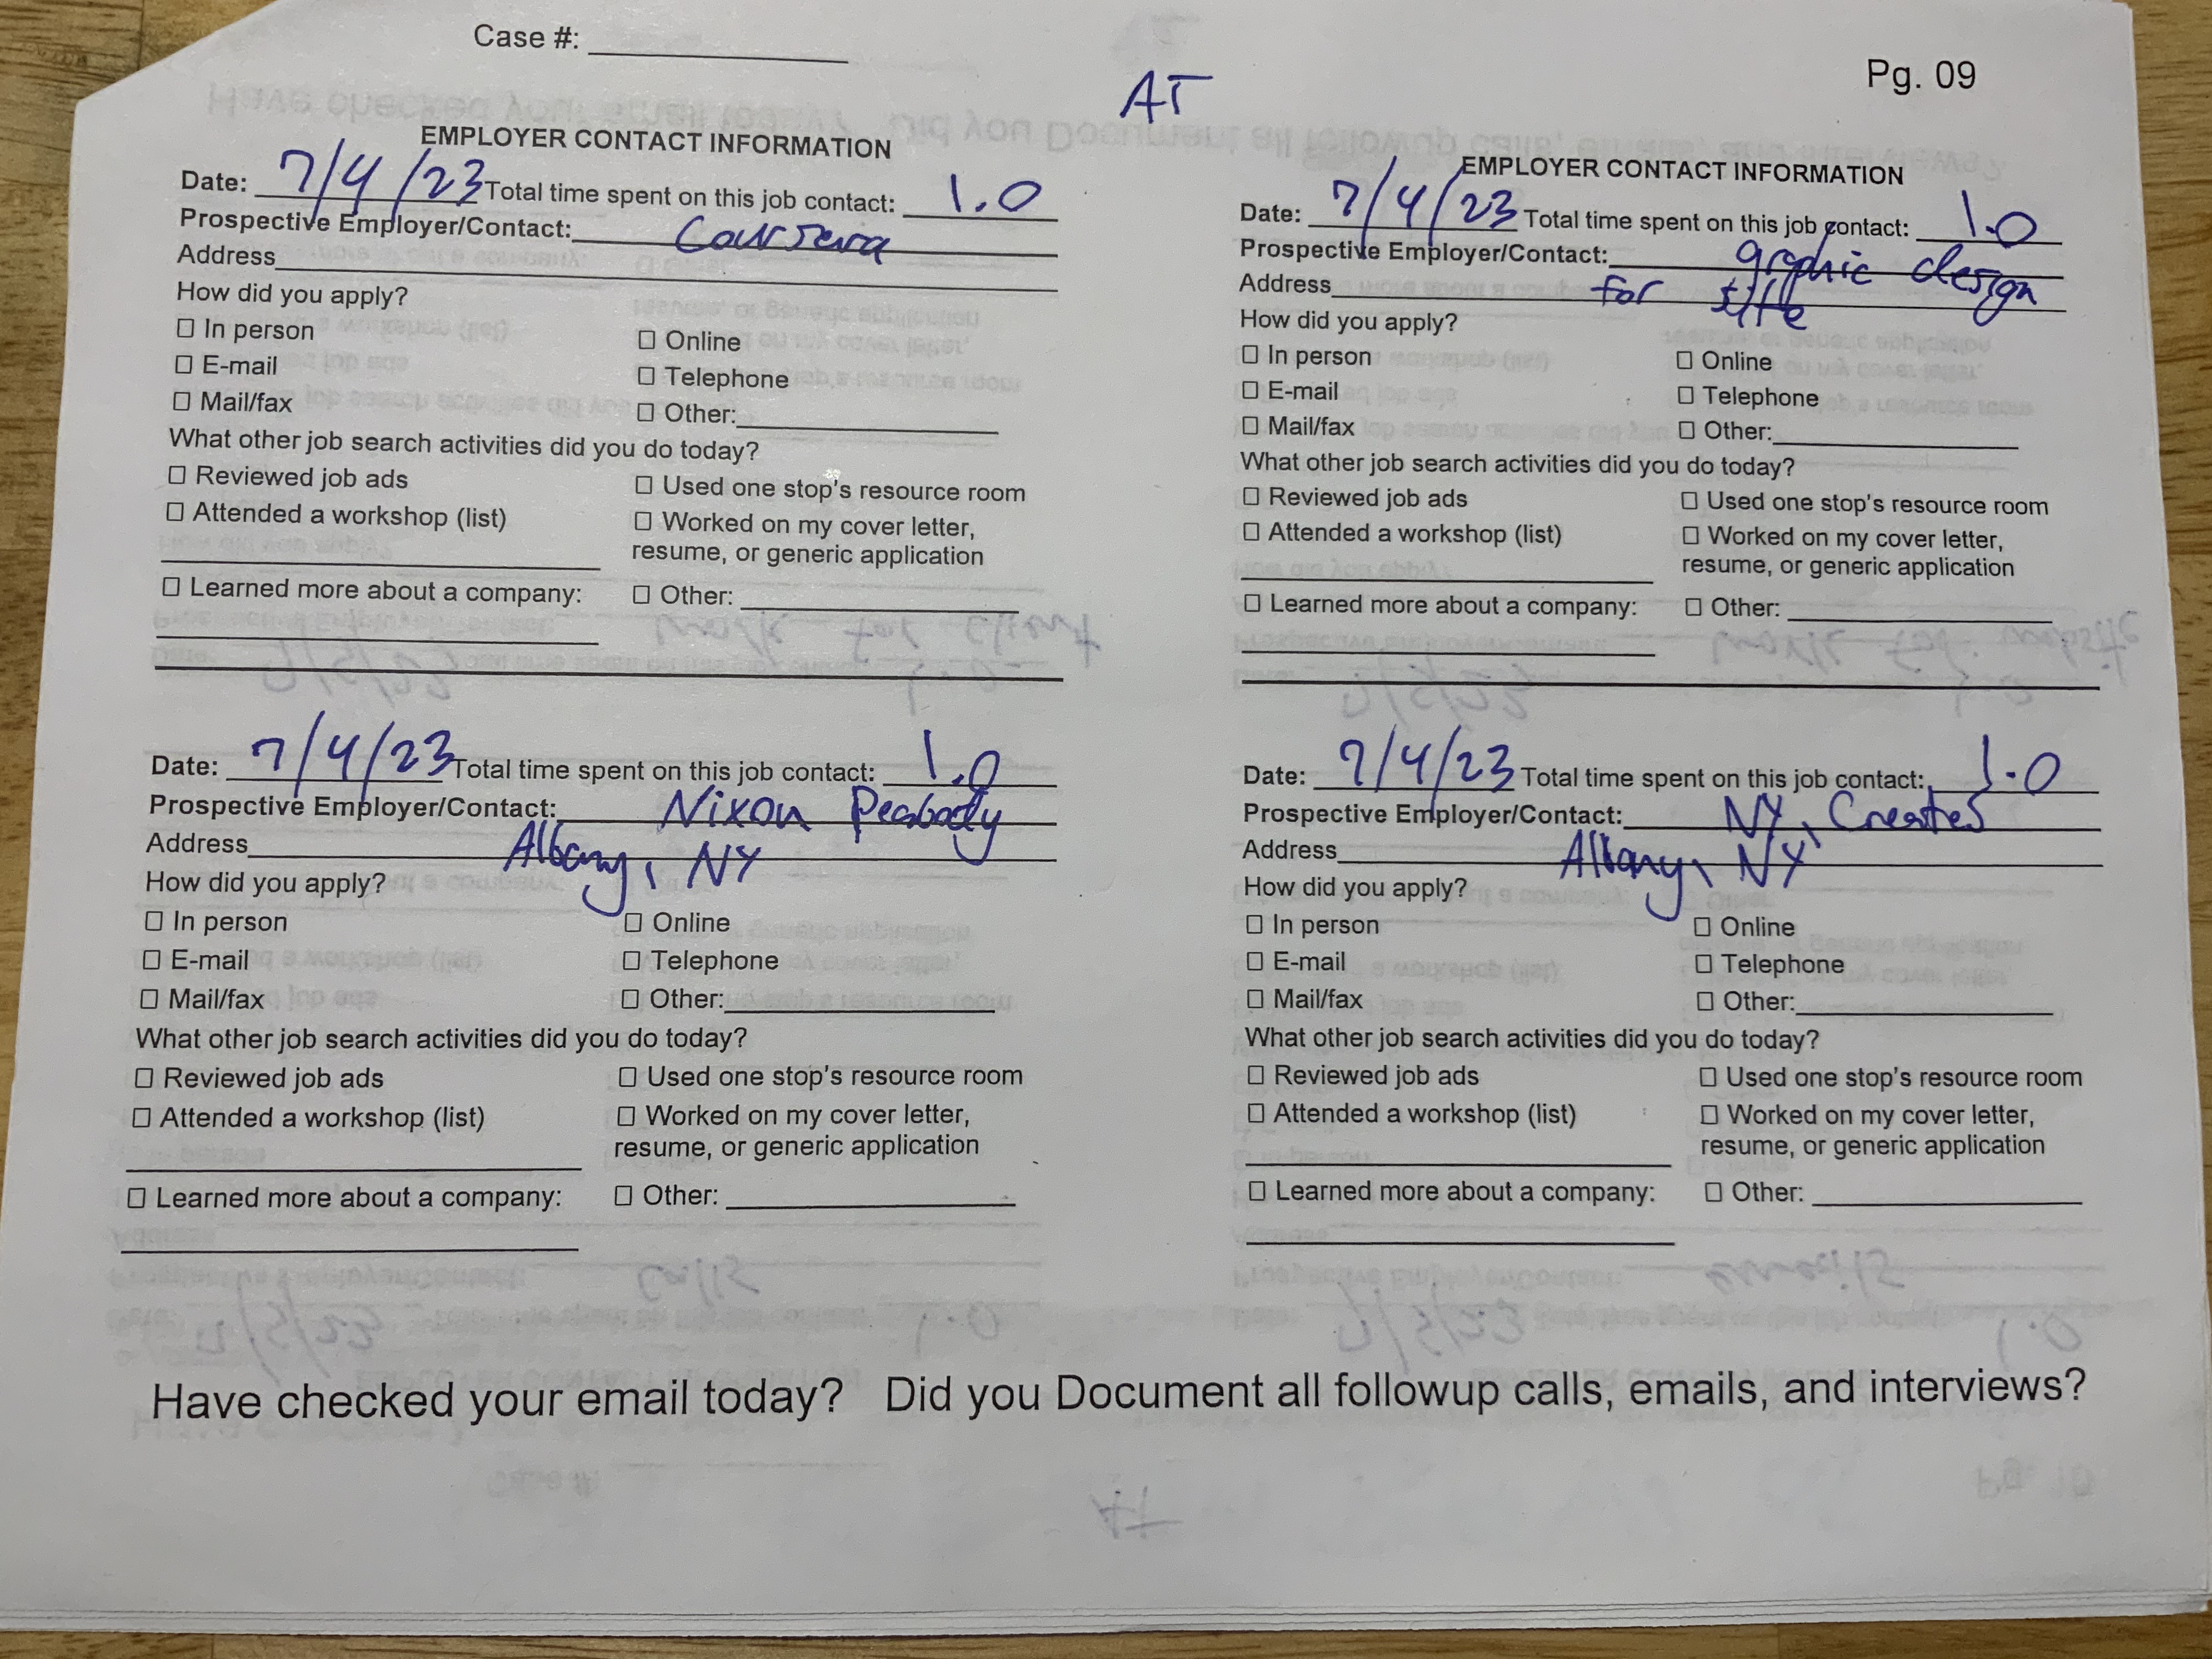 Case #:
AT
Pg. 09
EMPLOYER CONTACT INFORMATION
Date: 7/4/23 Total time spent on this job contact: 1.0
Prospective Employer/Contact: Coursera
Address
How did you apply?
☐ In person
☐ Online
☐ E-mail
☐ Telephone
☐ Mail/fax
☐ Other:
What other job search activities did you do today?
☐ Reviewed job ads
☐ Used one stop's resource room
☐ Attended a workshop (list)
☐ Worked on my cover letter,
resume, or generic application
☐ Learned more about a company:
☐ Other:
EMPLOYER CONTACT INFORMATION
Date: 7/4/23 Total time spent on this job contact: 1.0
Prospective Employer/Contact: graphic design
Address for site
How did you apply?
☐ In person
☐ Online
☐ E-mail
☐ Telephone
☐ Mail/fax
☐ Other:
What other job search activities did you do today?
☐ Reviewed job ads
☐ Used one stop's resource room
☐ Attended a workshop (list)
☐ Worked on my cover letter,
resume, or generic application
☐ Learned more about a company:
☐ Other:
Date: 7/4/23 Total time spent on this job contact: 1.0
Prospective Employer/Contact: Nixon Peabody
Address Albany, NY
How did you apply?
☐ In person
☐ Online
☐ E-mail
☐ Telephone
☐ Mail/fax
☐ Other:
What other job search activities did you do today?
☐ Reviewed job ads
☐ Used one stop's resource room
☐ Attended a workshop (list)
☐ Worked on my cover letter,
resume, or generic application
☐ Learned more about a company:
☐ Other:
Date: 7/4/23 Total time spent on this job contact: 1.0
Prospective Employer/Contact: NY, Creates
Address Albany, NY
How did you apply?
☐ In person
☐ Online
☐ E-mail
☐ Telephone
☐ Mail/fax
☐ Other:
What other job search activities did you do today?
☐ Reviewed job ads
☐ Used one stop's resource room
☐ Attended a workshop (list)
☐ Worked on my cover letter,
resume, or generic application
☐ Learned more about a company:
☐ Other:
Have checked your email today? Did you Document all followup calls, emails, and interviews?